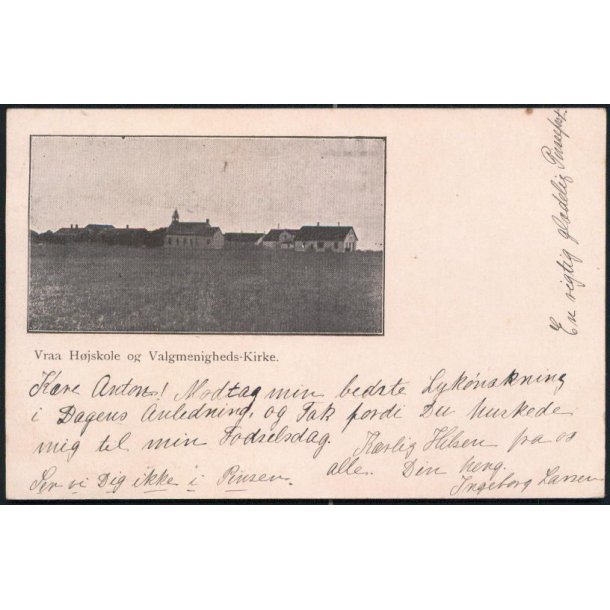 Vraa Højskole og Valgmenigheds-Kirke.
Kære Anton! Modtag min bedste Lykønskning
i Dagens Anledning, og Tak fordi Du huskede
mig til min Fødselsdag. Kærlig Hilsen fra os
alle. Din heng.
Ingeborg Larsen
Ser vi Dig ikke i Pinsen.
En rigtig glædelig